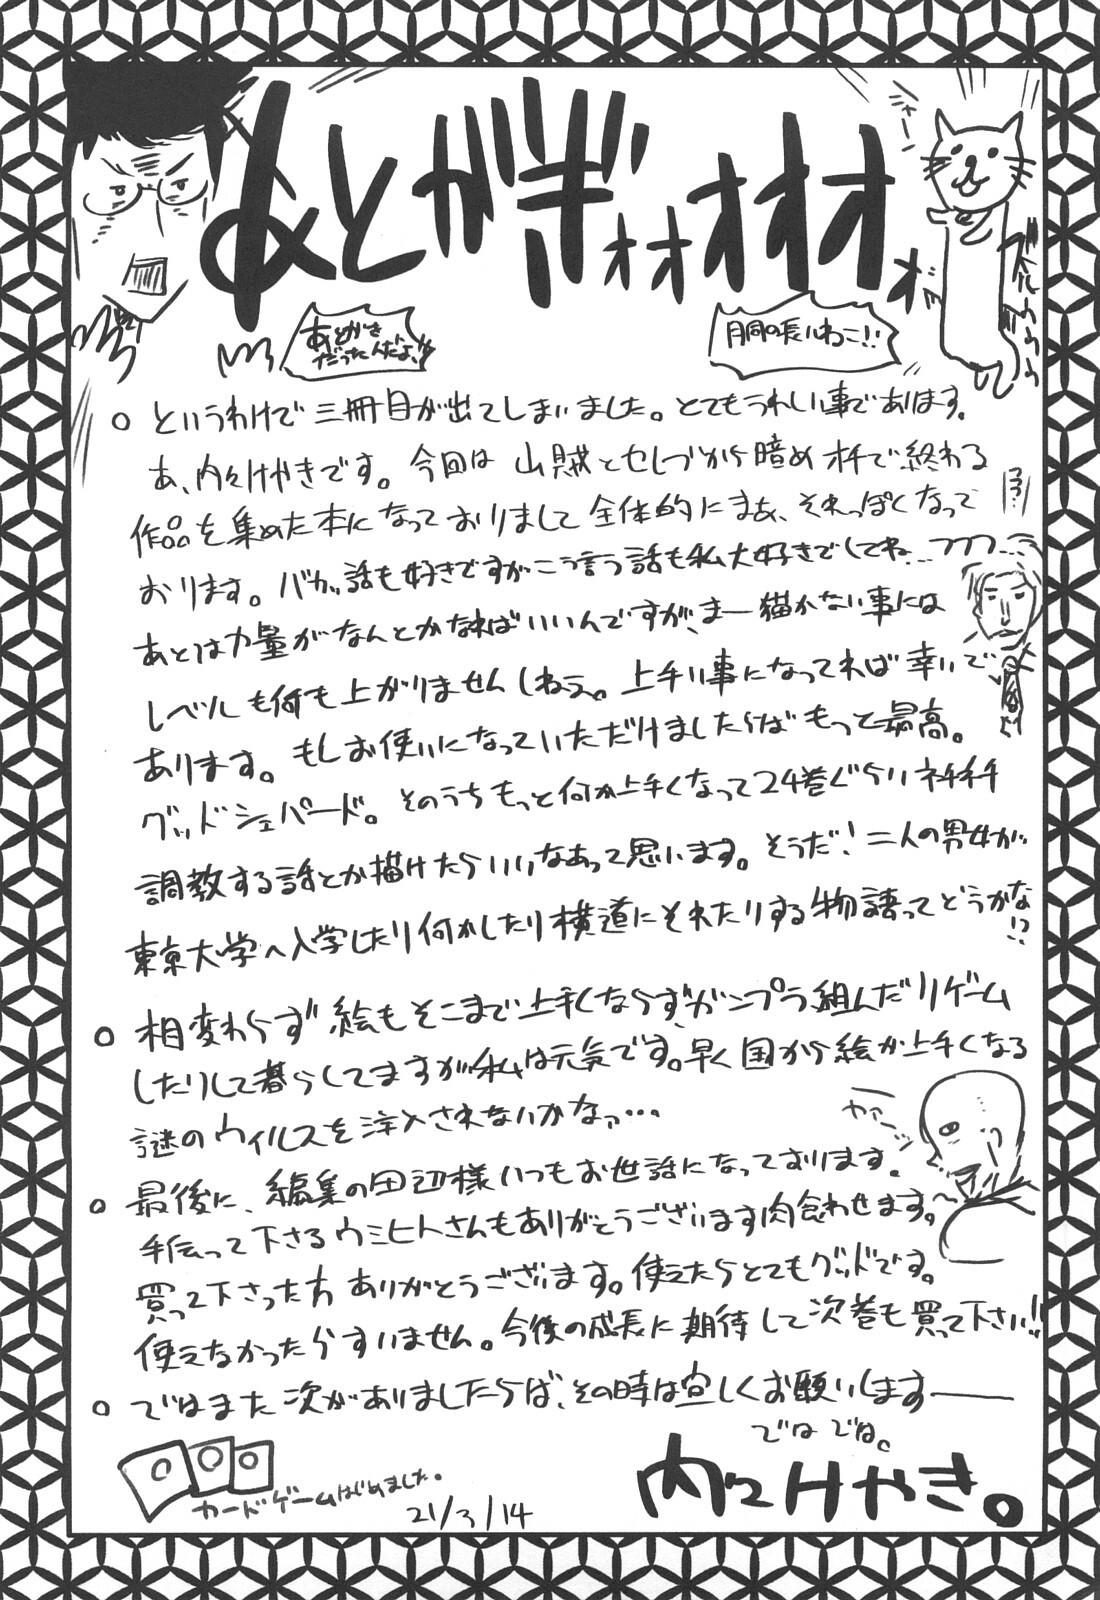 あとがきォォオオオオォッ
あとがき
だったんだよ!!
胴の長いねこ!!
というわけで三冊目が出てしまいました。とてもうれしい事であります。
あ、内々けやきです。今回は山賊とセレブから暗めオチで終わる
作品を集めた本になっておりまして全体的にまぁ、それっぽくなって
おります。バカ話も好きですがこう言う話も私大好きでしてね…フフフ…
あとは力量がなんとかなればいいんですが、まー描かない事には
レベルも何も上がりませんしねぇ。上手い事になってれば幸いで
あります。もしお使いになっていただけましたらばもっと最高。
グッドシェパード。そのうちもっと何か上手くなって24巻ぐらいネチネチ
調教する話とか描けたらいいなあって思います。そうだ!二人の男女が
東京大学へ入学したり何かしたり横道にそれたりする物語ってどうかな!?
相変わらず絵もそこまで上手くならず、ガンプラ組んだりゲーム
したりして暮らしてますが私は元気です。早く国から絵が上手くなる
謎のウィルスを注入されないかなぁ…
最後に、編集の田辺様いつもお世話になっております。
手伝って下さるウミヒトさんもありがとうございます肉食わせます。
買って下さった方ありがとうございます。使えたらとてもグッドです。
使えなかったらすいません。今後の成長に期待して次巻も買って下さい!!
ではまた次がありましたらば、その時は宜しくお願いしますーー
ではでは。
内々けやき。
カードゲームはじめました。
21/3/14